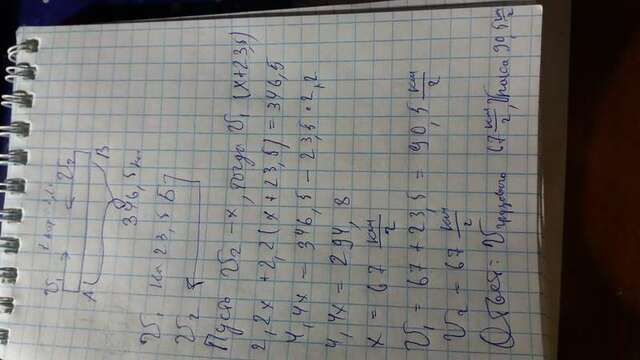 V₁ V₂
А В
346,5 км
V₁ на 23,5 Б
V₂
Пусть V₂ - х, тогда V₁ (х+23,5)
2,2х + 2,2(х + 23,5) = 346,5
4,4х = 346,5 - 23,5 · 2,2
4,4х = 294,8
х = 67 км/г
V₁ = 67 + 23,5 = 90,5 км/г
V₂ = 67 км/г
Ответ: V грузового 67 км/г, V 90,5 км/г